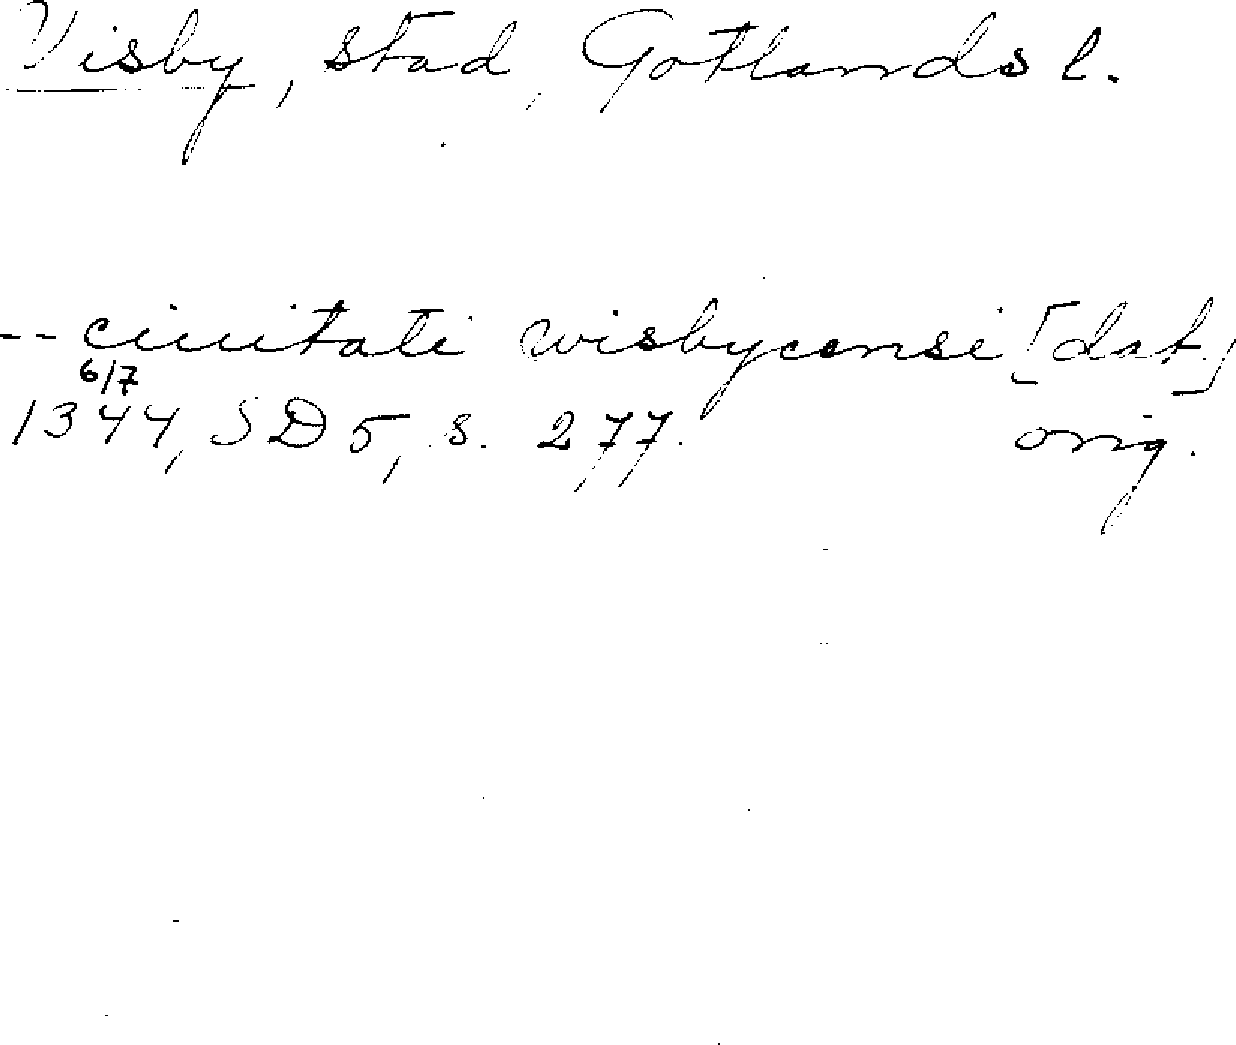 Visby, stad, Gotlands l.
-- ciuitati wisbycensi [dat.]
6/7
1344, SD 5, s. 277. orig.